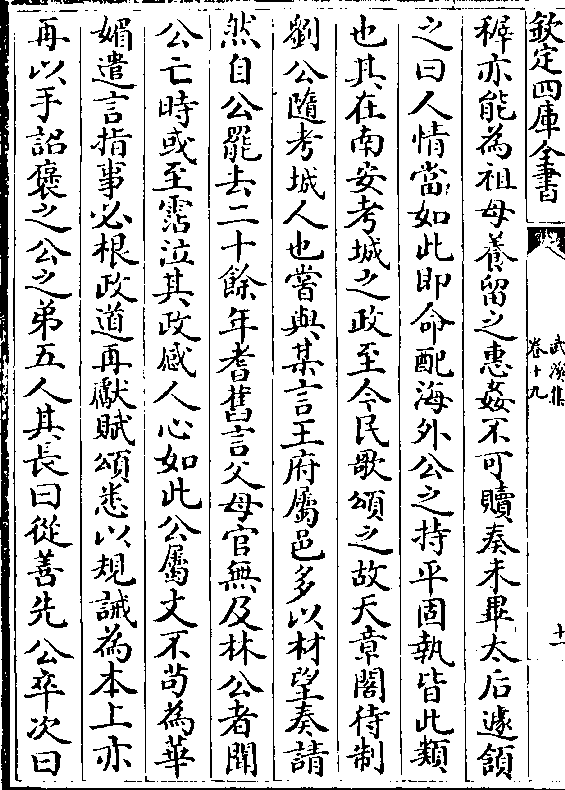 欽定四庫全書
武溪集
卷十九
十一
穉亦能為祖母養留之惠姦不可贖奏未畢太后遽頷
之曰人情當如此即命配海外公之持平固執皆此類
也其在南安考城之政至今民歌頌之故天章閣待制
劉公隨考城人也嘗與某言王府屬邑多以材望奏請
然自公罷去二十餘年耆舊言父母官無及林公者聞
公亡時或至霑泣其政感人心如此公屬文不茍為華
媚遣言指事必根政道再獻賦頌悉以規誡為本上亦
再以手詔褒之公之弟五人其長曰從善先公卒次曰